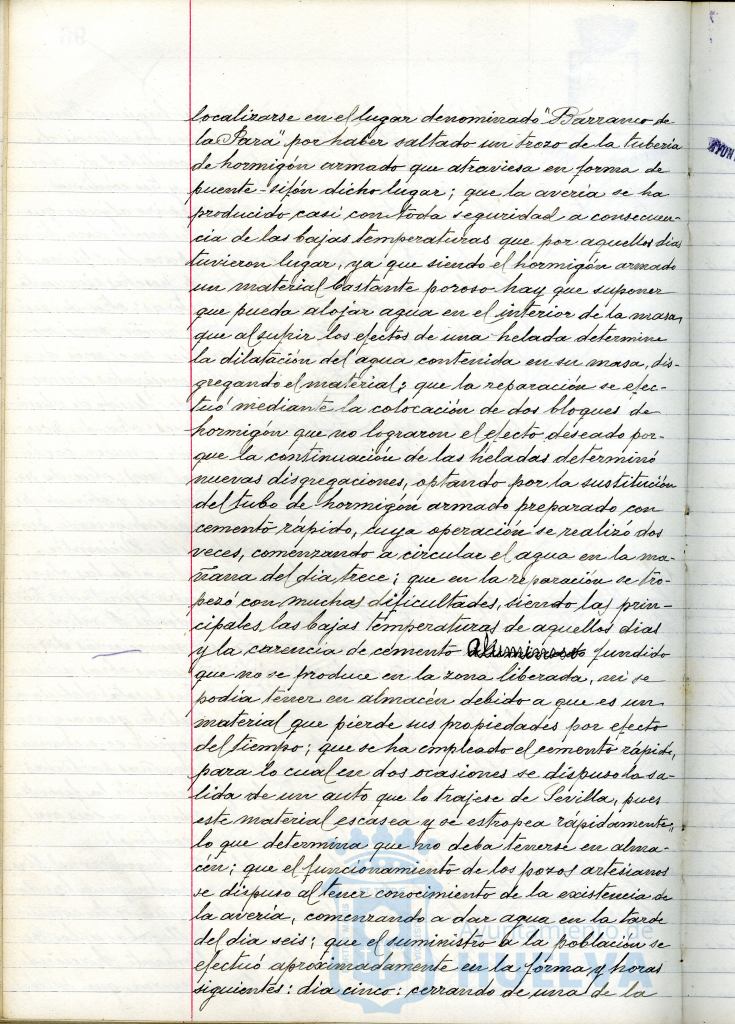 localizarse en el lugar denominado "Barranco de
la Para" por haber saltado un trozo de la tubería
de hormigón armado que atraviesa en forma de
puente-sifón dicho lugar; que la avería se ha
producido casi con toda seguridad a consecuen-
cia de las bajas temperaturas que por aquellos dias
tuvieron lugar, ya que siendo el hormigón armado
un material bastante poroso hay que suponer
que pueda alojar agua en el interior de la masa,
que al sufrir los efectos de una helada determine
la dilatación del agua contenida en su masa, dis-
gregando el material; que la reparación se efec-
tuó mediante la colocación de dos bloques de
hormigón que no lograron el efecto deseado por-
que la continuación de las heladas determinó
nuevas disgregaciones, optando por la sustitución
del tubo de hormigón armado preparado con
cemento rápido, cuya operación se realizó dos
veces, comenzando a circular el agua en la ma-
ñana del dia trece; que en la reparación se tro-
pezó con muchas dificultades, siendo las prin-
cipales las bajas temperaturas de aquellos dias
y la carencia de cemento aluminoso fundido
que no se produce en la zona liberada, ni se
podia tener en almacén debido a que es un
material que pierde sus propiedades por efecto
del tiempo; que se ha empleado el cemento rápido,
para lo cual en dos ocasiones se dispuso la sa-
lida de un auto que lo trajese de Sevilla, pues
este material escasea y se estropea rápidamente,
lo que determina que no deba tenerse en alma-
cén; que el funcionamiento de los pozos artesianos
se dispuso al tener conocimiento de la existencia de
la avería, comenzando a dar agua en la tarde
del dia seis; que el suministro a la población se
efectuó aproximadamente en la forma y horas
siguientes: dia cinco: cerrando de una de la
Ayuntamiento de
HUELVA